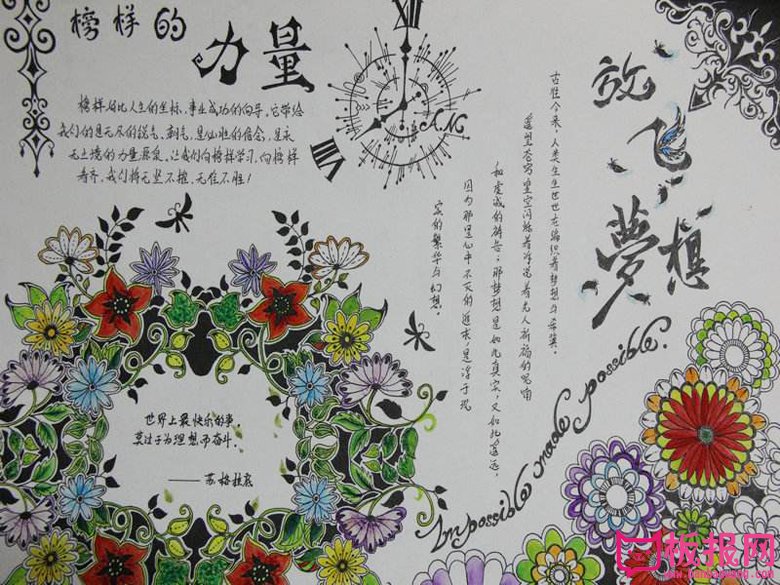 榜样的
力量
榜样好比人生的坐标、事业成功的向导，它带给
我们的是无尽的锐气、朝气，是必胜的信念，是永
无止境的力量源泉。让我们向榜样学习，向榜样
看齐，我们将无坚不摧，无往不胜！
XII
VIII
放飞
夢想
古往今来，人类生生世世在编织着梦想与希冀，
遥望苍穹星空闪烁着浮游着先人祈福的咒语
和虔诚的祷告；那梦想是如此真实，又如此遥远，
因为那是心中不灭的追求，是浮于现
实的繁华与幻想
世界上最快乐的事，
莫过于为理想而奋斗。
——苏格拉底
Impossible made possible.
板报网